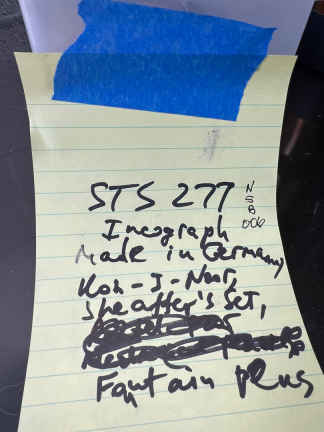 STS 277 NSB 006
Incograph
Made in Germany
Koh-I-Noor,
Sheaffer's Set,
Fontain Plus